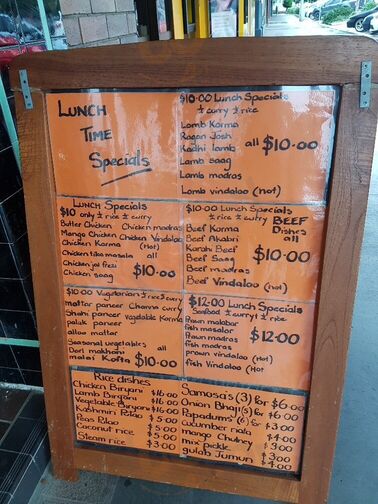 LUNCH
TIME
Specials
$10.00 Lunch Specials
½ curry ½ rice
Lamb Korma
Rogan Josh
Kadhi lamb all $10.00
Lamb saag
Lamb madras
Lamb vindaloo (hot)
LUNCH Specials
$10 only ½ rice ½ curry
Butter Chicken Chicken madras
Mango Chicken Chicken Vindaloo
Chicken Korma (hot)
Chicken tika masala all
Chicken jal frezi
Chicken saag $10.00
$10.00 Lunch Specials
½ rice ½ curry BEEF
Beef Korma Dishes
Beef Akabri all
Karahi Beef
Beef Saag $10.00
Beef madras
Beef Vindaloo (hot)
$10.00 Vegetarian ½ rice ½ curry
mattar paneer Channa curry
Shahi paneer vegetable Korma
palak paneer
alluo mattar
Seasonal vegetables all
Dari makhani
malai Kofta $10.00
$12.00 Lunch Specials
Seafood ½ curry ½ rice
Prawn malabar
fish masalar
Prawn madras $12.00
fish madras
prawn vindaloo (Hot)
fish Vindaloo (Hot)
Rice dishes
Chicken Biryani $16.00
Lamb Biryani $16.00
Vegetable Biryani $16.00
Kashmiri Pulao $5.00
Peas Pilao $5.00
Coconut rice $5.00
Steam rice $3.00
Samosas (3) for $6.00
Onion Bhaji (5) for $6.00
Papadums (6) for $3.00
cucumber riata $4.00
mango Chutney $3.00
mix pickle $3.00
gulab Jumun $4.00